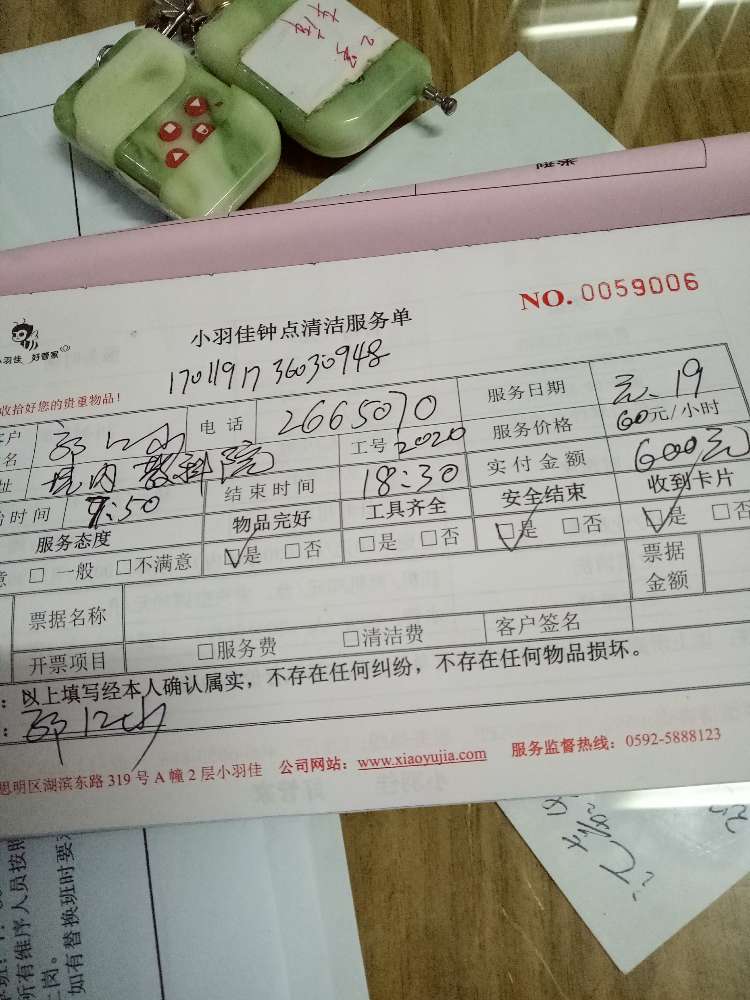 NO. 0059006
小羽佳钟点清洁服务单
小羽佳 好管家
17011917 36030948
收拾好您的贵重物品！
电话 2665070 服务日期 19
工号 2020 服务价格 60元/小时
教科院 结束时间 18:30 实付金额 600元
时间 9:50 物品完好 工具齐全 安全结束 收到卡片
服务态度 ☑是 □否 □是 □否 ☑是 □否 ☑是 □否
□ 一般 □不满意
票据名称 票据金额
开票项目 □服务费 □清洁费 客户签名
：以上填写经本人确认属实，不存在任何纠纷，不存在任何物品损坏。
思明区湖滨东路 319 号 A 幢 2 层小羽佳 公司网站：www.xiaoyujia.com 服务监督热线：0592-5888123
所有维序人员按照
二岗。
如有替换班时要